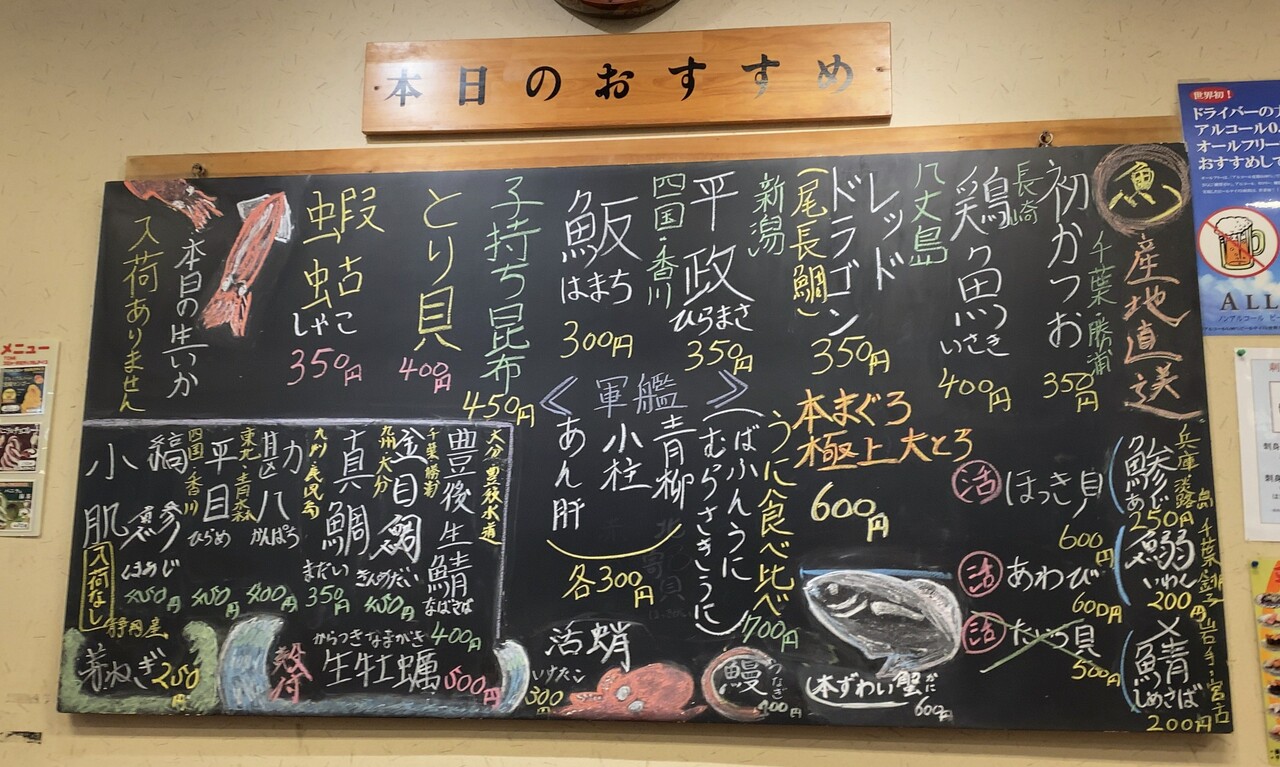 本日のおすすめ
魚
産地直送
初かつお
千葉・勝浦
350円
長崎
鶏魚
いさき
400円
八丈島
レッド
ドラゴン
(尾長鯛)
350円
新潟
平政
ひらまさ
350円
四国・香川
魬
はまち
300円
子持ち昆布
450円
とり貝
400円
蝦蛄
しゃこ
350円
本日の生いか
入荷ありません
兵庫 淡路島
鯵
あじ
250円
千葉・銚子
鰯
いわし
200円
岩手・宮古
〆鯖
しめさば
200円
活 ほっき貝
600円
活 あわび
600円
活 たいら貝
500円
本まぐろ
極上大とろ
600円
うに食べ比べ
(ばふんうに
むらさきうに)
700円
《軍艦》
青柳
小柱
あん肝
各300円
本ずわい蟹
かに
600円
鰻
うなぎ
400円
活蛸
いけだこ
300円
大分・豊後水道
豊後生鯖
なまさば
400円
千葉・勝浦
金目鯛
きんめだい
450円
九州・大分
真鯛
まだい
350円
九州・鹿児島
勘八
かんぱち
400円
東北・青森
平目
ひらめ
450円
四国・香川
縞鰺
しまあじ
450円
小肌
入荷なし
殻付
からつきなまがき
生牡蠣
500円
静岡産
芽ねぎ
250円
メニュー
世界初!
ドライバーの
アルコール0.
オールフリー
おすすめして
ALL
ノンアルコール